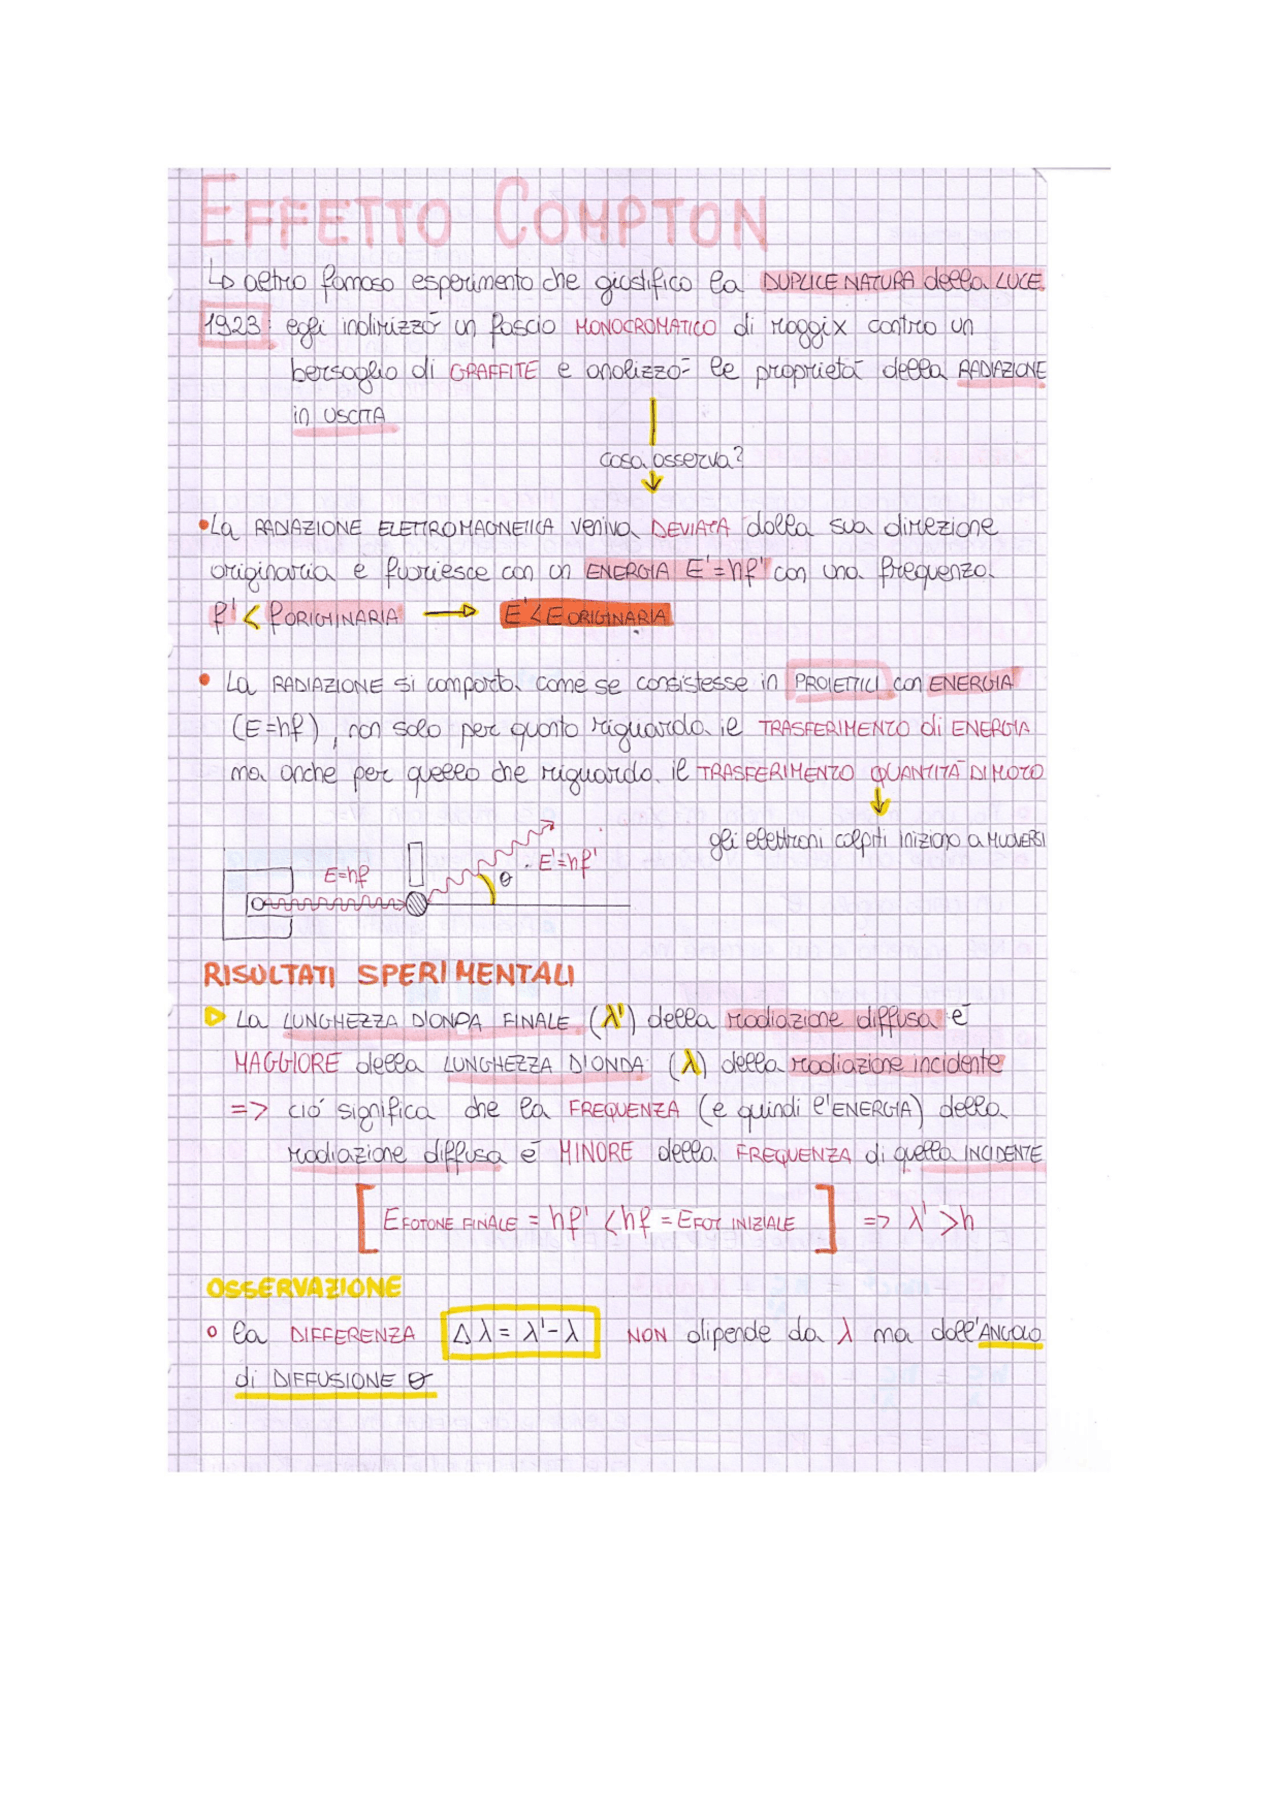 EFFETTO COMPTON
↳ altro famoso esperimento che giustifico la DUPLICE NATURA della LUCE
1923: egli indirizzó un fascio MONOCROMATICO di raggi x contro un
bersaglio di GRAFFITE e analizzó le proprietá della RADIAZIONE
in USCITA
cosa osserva?
•La RADIAZIONE ELETTROMAGNETICA veniva DEVIATA dalla sua direzione
originaria e fuoriesce con un ENERGIA E'=hf' con una frequenza
f' < fORIGINARIA → E'<E ORIGINARIA
• La RADIAZIONE si comporta come se consistesse in PROIETTILI con ENERGIA
(E=hf), non solo per quanto riguarda il TRASFERIMENTO di ENERGIA
ma anche per quello che riguarda il TRASFERIMENTO QUANTITÀ DI MOTO
gli elettroni colpiti iniziano a MUOVERSI
E=hf
θ
E'=hf'
RISULTATI SPERIMENTALI
▷ La LUNGHEZZA D'ONDA FINALE (λ') della radiazione diffusa é
MAGGIORE della LUNGHEZZA D'ONDA (λ) della radiazione incidente
=> ció significa che la FREQUENZA (e quindi l'ENERGIA) della
radiazione diffusa é MINORE della FREQUENZA di quella INCIDENTE
[EFOTONE FINALE = hf' <hf = EFOT INIZIALE] => λ' >h
OSSERVAZIONE
o la DIFFERENZA Δλ = λ'-λ NON dipende da λ ma dall'ANGOLO
di DIFFUSIONE θ